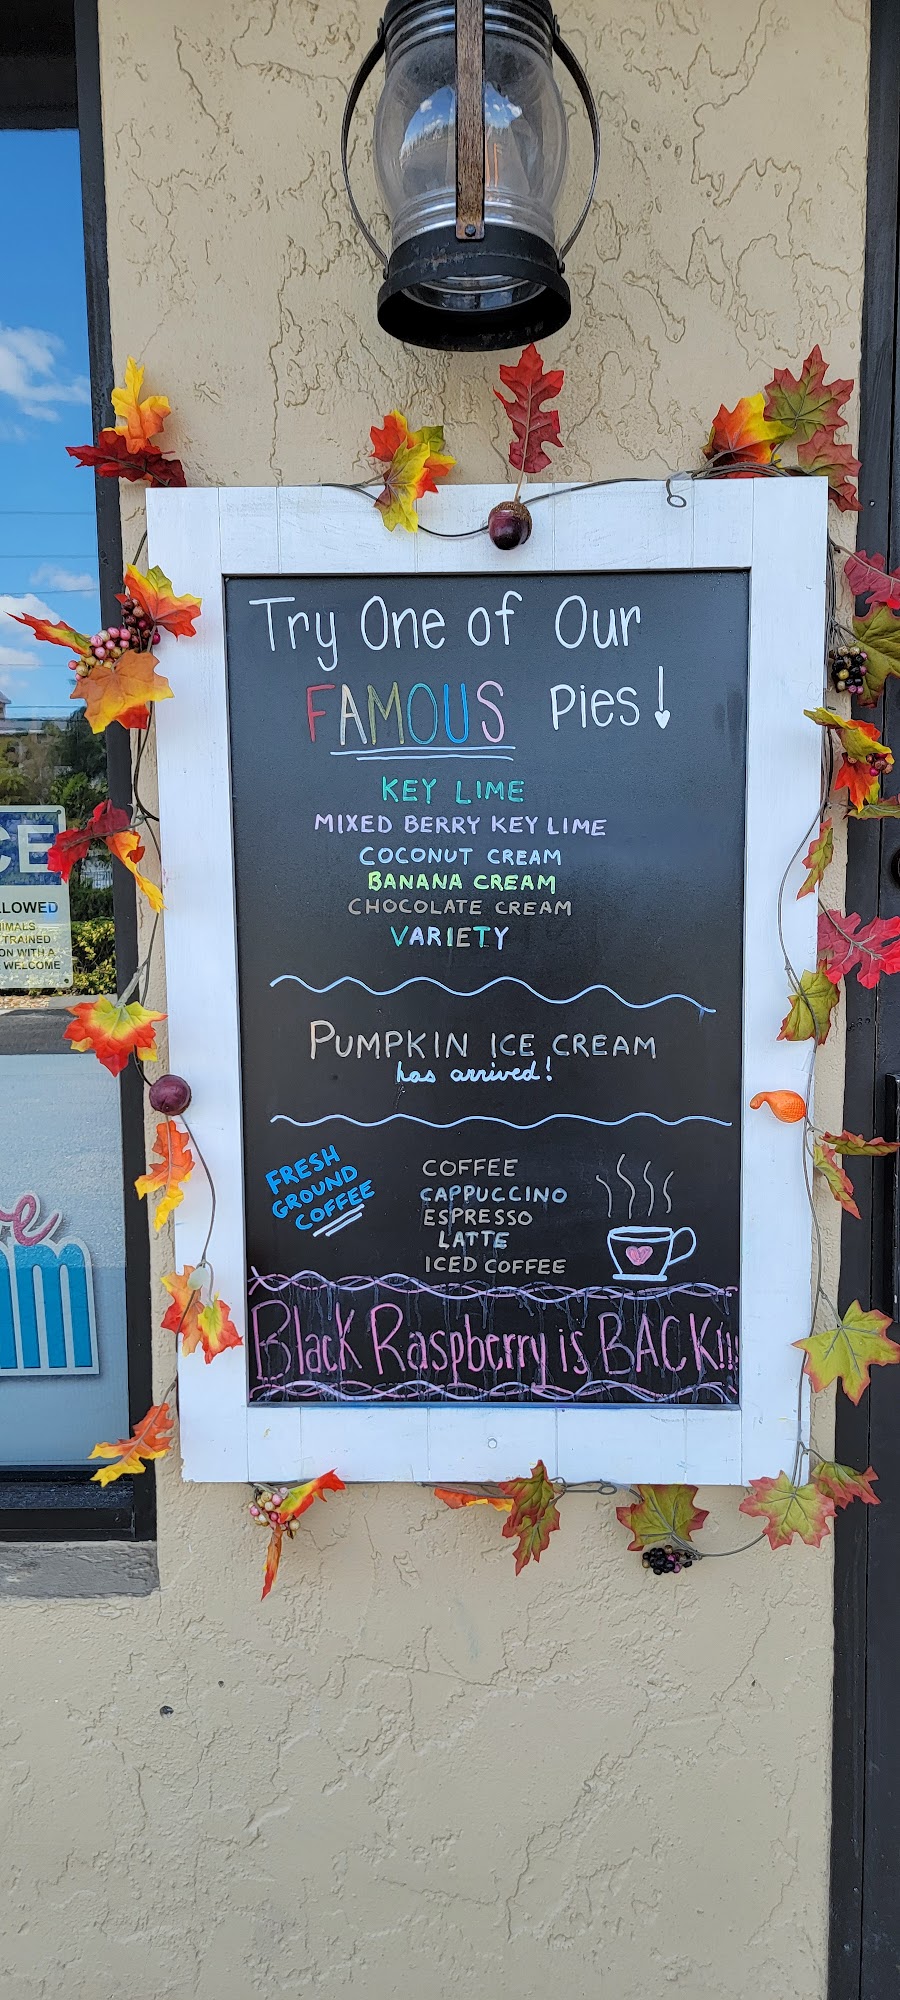 Try One of Our
FAMOUS Pies!
KEY LIME
MIXED BERRY KEY LIME
COCONUT CREAM
BANANA CREAM
CHOCOLATE CREAM
VARIETY
PUMPKIN ICE CREAM
has arrived!
FRESH
GROUND
COFFEE
COFFEE
CAPPUCCINO
ESPRESSO
LATTE
ICED COFFEE
Black Raspberry is BACK!!!
CE
LLOWED
IMALS
TRAINED
ON WITH A
WELCOME